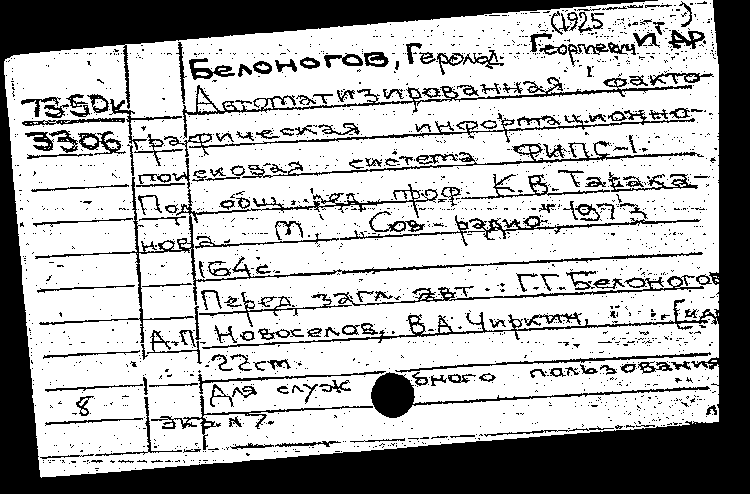 (1925 )
Белоногов, Герольд Георгиевич и др
73-50к Автоматизированная факто-
3306 графическая информационно-
поисковая система ФИПС-1.
Под общ. ред. проф. К.В. Тарака-
нова. М., "Сов. радио", 1973
164 с.
Перед загл. авт.: Г.Г. Белоногов
А.П. Новоселов, В.А. Чиркин, [и др
22 см.
Для служ бного пользования
8 экз. №7.